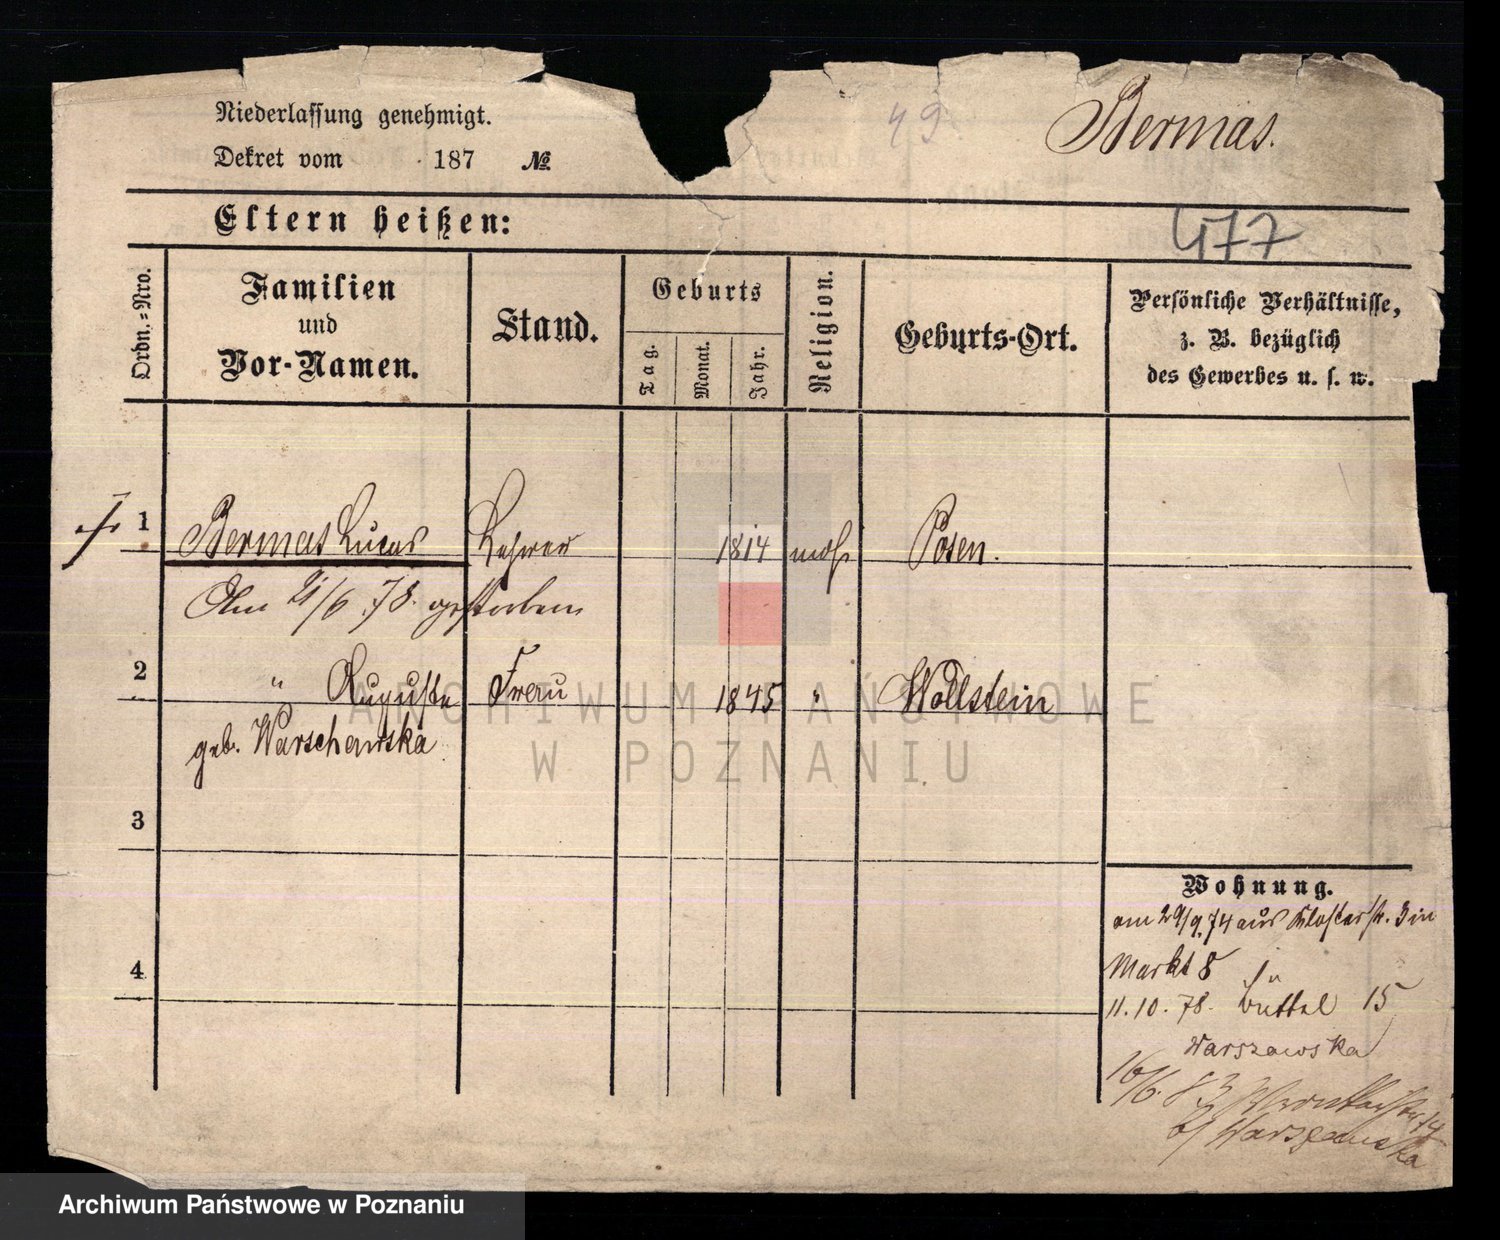 Niederlassung genehmigt.
49
Bermas.
Dekret vom 187 №
Eltern heißen:
477
Ordn.=Nro.
Familien
und
Vor-Namen.
Stand.
Geburts
Tag.
Monat.
Jahr.
Religion.
Geburts-Ort.
Persönliche Verhältnisse,
z. B. bezüglich
des Gewerbes u. s. w.
1 Bermas Lucas Lehrer 1814 mos. Posen.
Am 21/6 78. gestorben
2 " Auguste Frau 1845 " Wollstein
geb. Warschawska
3
Wohnung.
am 29/9. 74 aus Klosterstr. 3 in
Markt 8
4
11. 10. 78. Büttel 15
Warszawska
16/6. 83
b/ Warszawska
ARCHIWUM PAŃSTWOWE
W POZNANIU
Archiwum Państwowe w Poznaniu